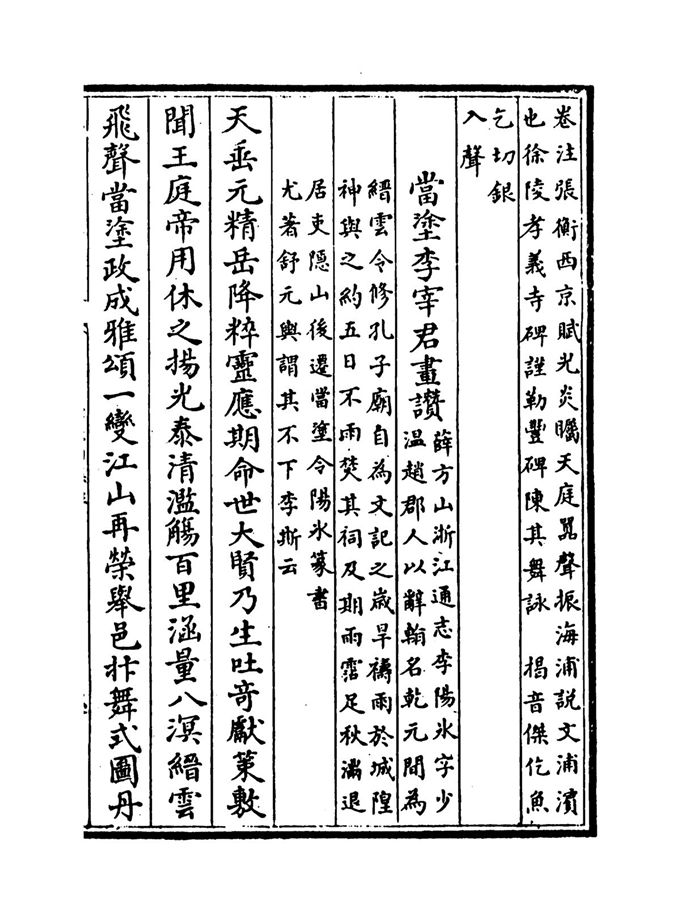 卷注張衡西京賦光炎矚天庭囂聲振海浦説文浦濱
也徐陵孝義寺碑謹勒豐碑陳其舞詠　揭音傑仡魚
乞切銀
入聲
當塗李宰君畫讚
薛方山浙江通志李陽氷字少
温趙郡人以辭翰名乾元間為
縉雲令修孔子廟自為文記之歲旱禱雨於城隍
神與之約五日不雨焚其祠及期雨霑足秋滿退
居吏隠山後遷當塗令陽氷篆書
尤著舒元輿謂其不下李斯云
天垂元精岳降粹靈應期命世大賢乃生吐竒獻策敷
聞王庭帝用休之揚光泰清濫觴百里涵量八溟縉雲
飛聲當塗政成雅頌一變江山再榮舉邑抃舞式圖丹